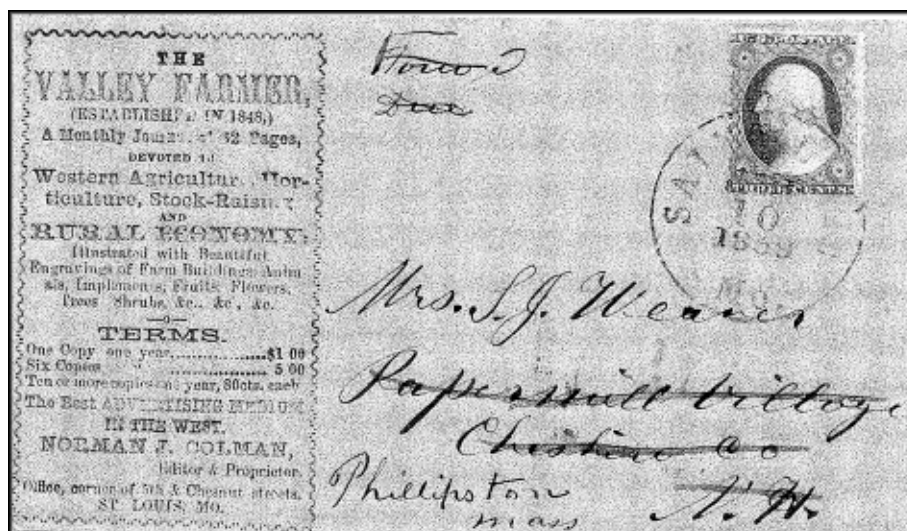 THE
VALLEY FARMER,
(ESTABLISHED IN 1848,)
A Monthly Journal of 32 Pages,
DEVOTED TO
Western Agriculture, Hor-
ticulture, Stock-Raising
AND
RURAL ECONOMY;
Illustrated with Beautiful
Engravings of Farm Buildings Anim
als, Implements, Fruits, Flowers,
Trees Shrubs, &c., &c., &c.
TERMS.
One Copy one year, $1 00
Six Copies 5 00
Ten or more copies one year, 80cts. each
The Best ADVERTISING MEDIUM
IN THE WEST.
NORMAN J. COLMAN,
Editor & Proprietor.
Office, corner of 5th & Chesnut streets,
ST. LOUIS, MO.
Due
10
MO.
Mrs. S. J. Weaver
Papermill Village
Cheshire Co
N. H.
Phillipston
mass